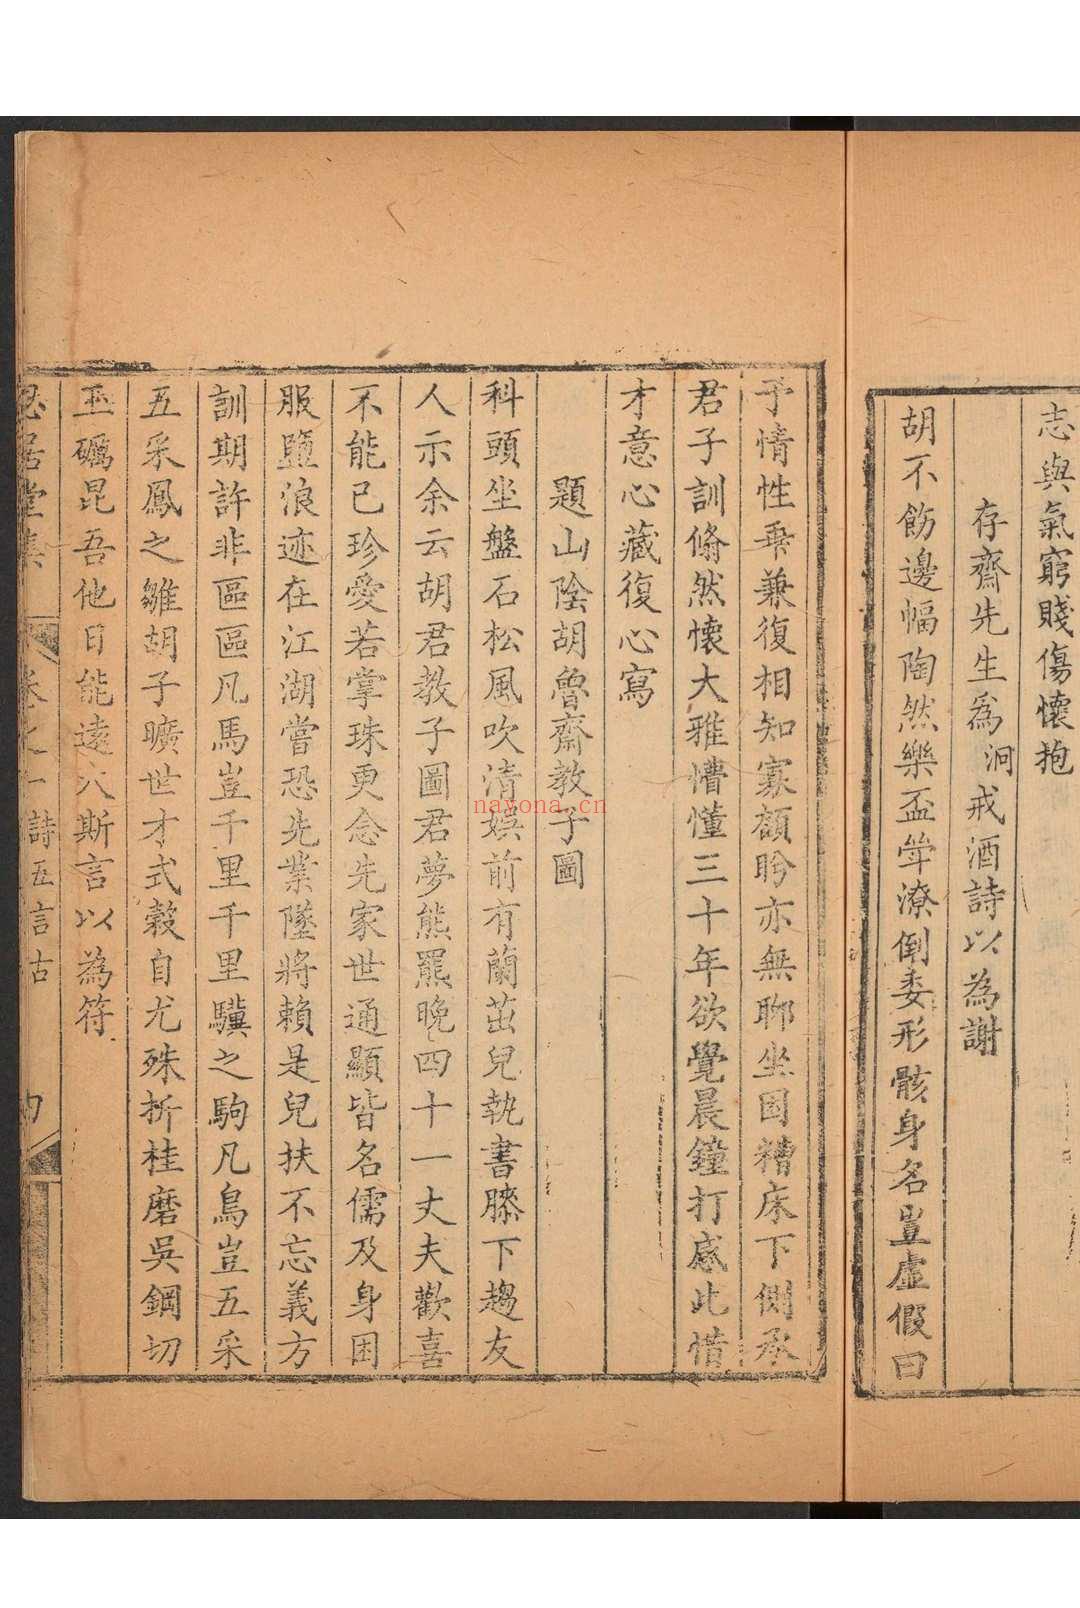 志與氣窮賤傷懷抱
存齋先生爲泂戒酒詩以為謝
胡不飭邊幅陶然樂盃斝潦倒委形骸身名豈虛假曰
予情性乖兼復相知寡顏眄亦無聊坐困糟床下側承
君子訓脩然懷大雅懵懂三十年欲覺晨鐘打感此惜
才意心藏復心寫
題山陰胡魯齋教子圖
科頭坐盤石松風吹清娛前有蘭茁兒執書膝下趨友
人示余云胡君教子圖君夢熊羆晚四十一丈夫歡喜
不能已珍愛若掌珠更念先家世通顯皆名儒及身困
服鹽浪迹在江湖嘗恐先業墜將賴是兒扶不忘義方
訓期許非區區凡馬豈千里千里驥之駒凡鳥豈五采
五采鳳之雛胡子曠世才式穀自尤殊折桂磨吳鋼切
玉礪昆吾他日能遠大斯言以為符
居堂集 卷之一 詩五言古
nayona.cn